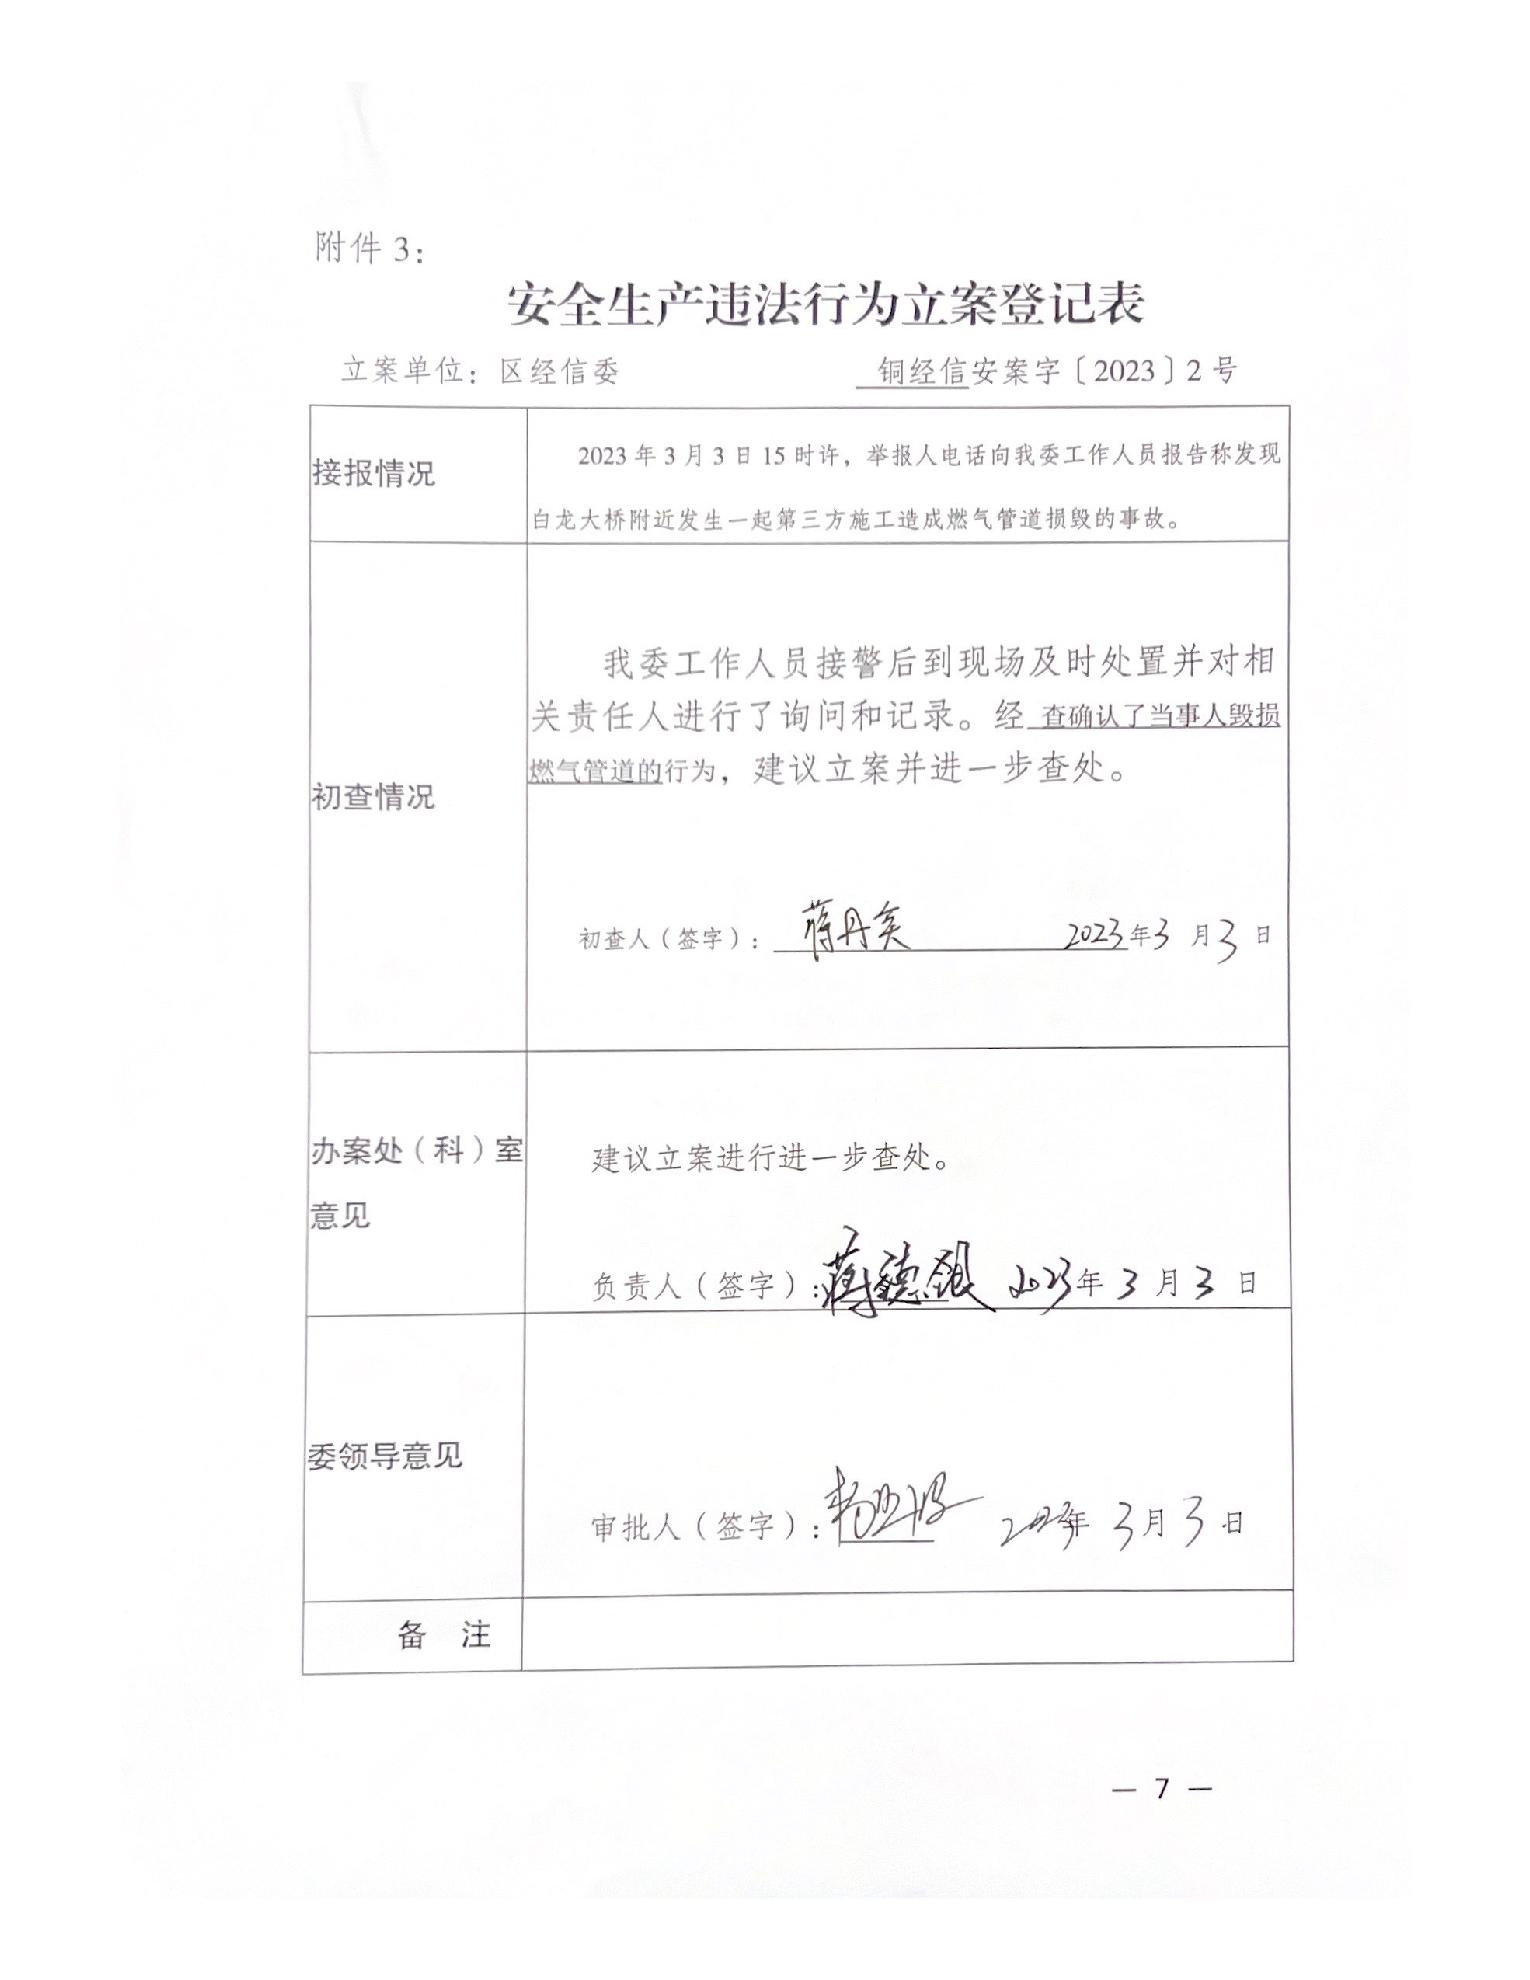 附件 3：
安全生产违法行为立案登记表
立案单位：区经信委 铜经信安案字〔2023〕2 号
接报情况
2023 年 3 月 3 日 15 时许，举报人电话向我委工作人员报告称发现
白龙大桥附近发生一起第三方施工造成燃气管道损毁的事故。
初查情况
我委工作人员接警后到现场及时处置并对相
关责任人进行了询问和记录。经 查确认了当事人毁损
燃气管道的行为，建议立案并进一步查处。
初查人（签字）： 2023 年 3 月 3 日
办案处（科）室
意见
建议立案进行进一步查处。
负责人（签字）：蒋德银 2023年 3 月 3 日
委领导意见
审批人（签字）： 2023年 3 月 3 日
备 注
— 7 —